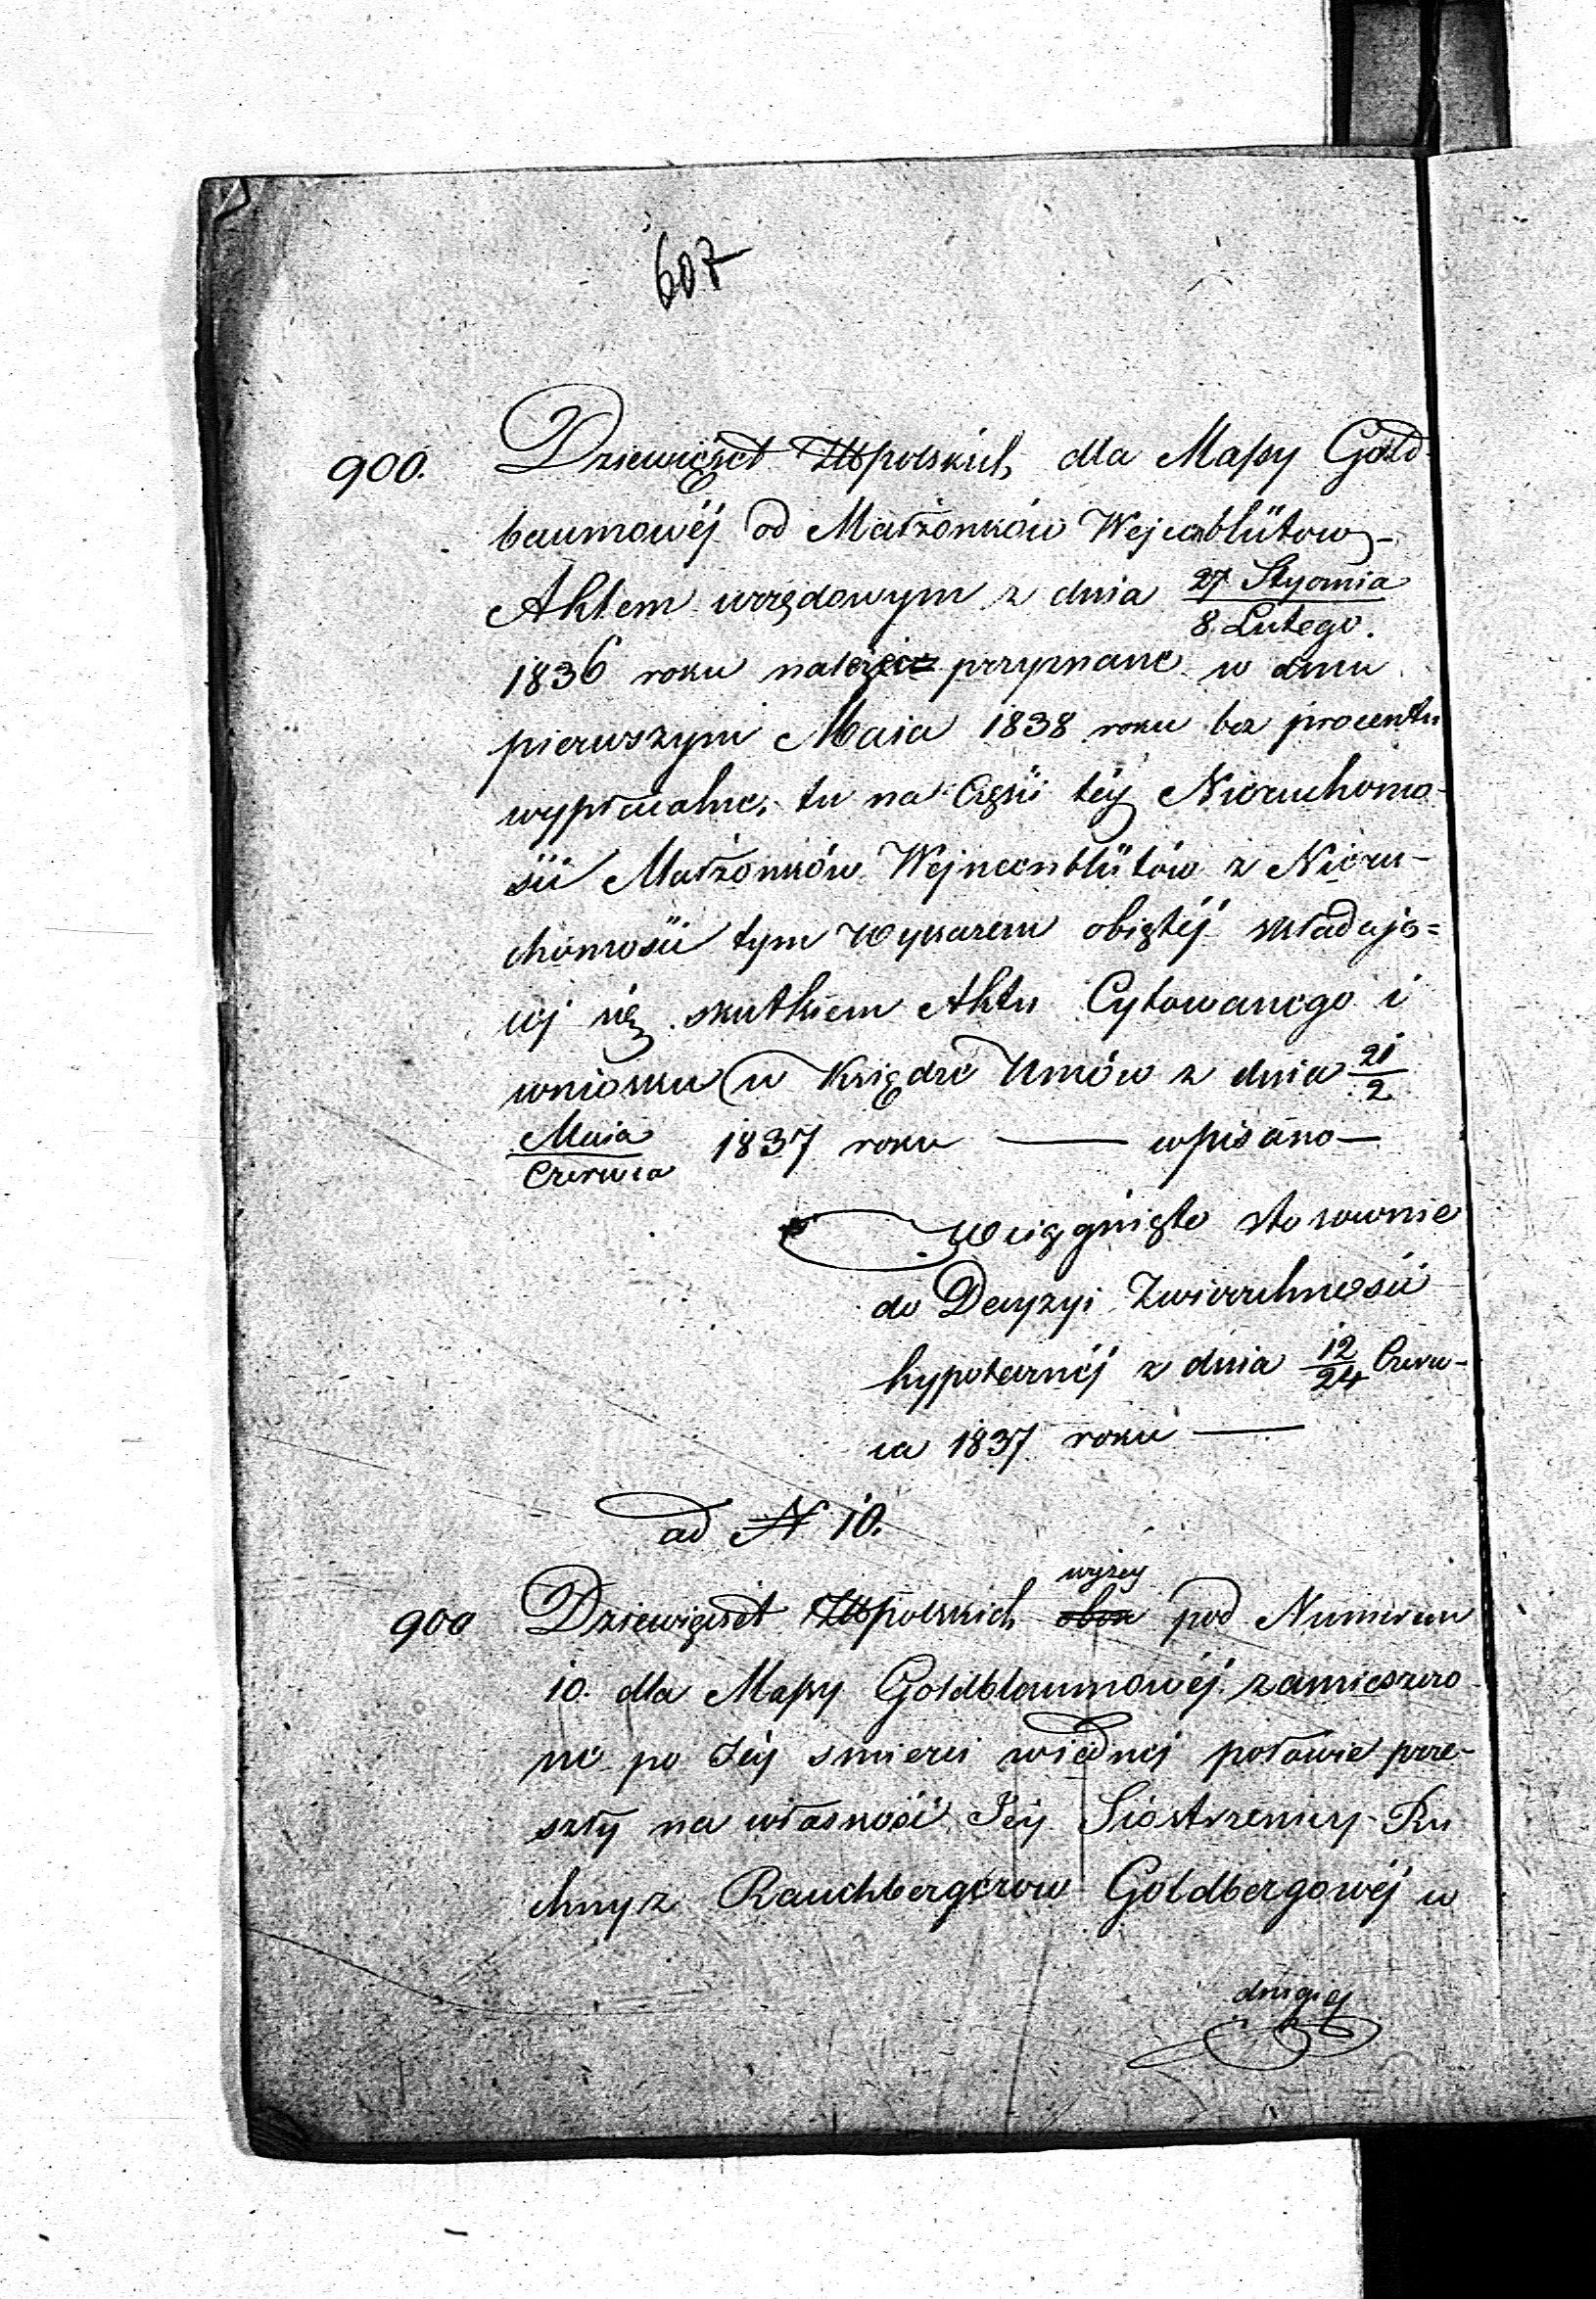 607
900. Dziewięćset Złłpolskich dla Massy Gold-
baumowéj od Małżonków Wejnenblütow-
Aktem urzędowym z dnia 27 Stycznia / 8 Lutego.
1836 roku należeć przyznane w dniu
pierwszym Maia 1838 roku bez procentu
wypłacalne, tu na Części téj Nieruchomo-
ści Małżonków Wejnenblütów z Nieru-
chomości tym Wykazem obiętéj składają=
céj się skutkiem Aktu Cytowanego i
wniosku w Księdze Umów z dnia 21/2
Maia/Czerwca 1837 roku — wpisano —
Wciągnięto stosownie
do Decyzyi Zwierzchności
hypotecznéj z dnia 12/24 Czerw-
ca 1837 roku —
ad N 10.
900 Dziewięćset Złłpolskich obok wyżey pod Numerem
10. dla Massy Goldblaumowéj zamieszczo-
ne po Jéj smierci w iednéj połowie prze-
szły na własność Jéj Siostrzenicy Ru
chny z Rauchbergerow Goldbergowéj w
drugiéj